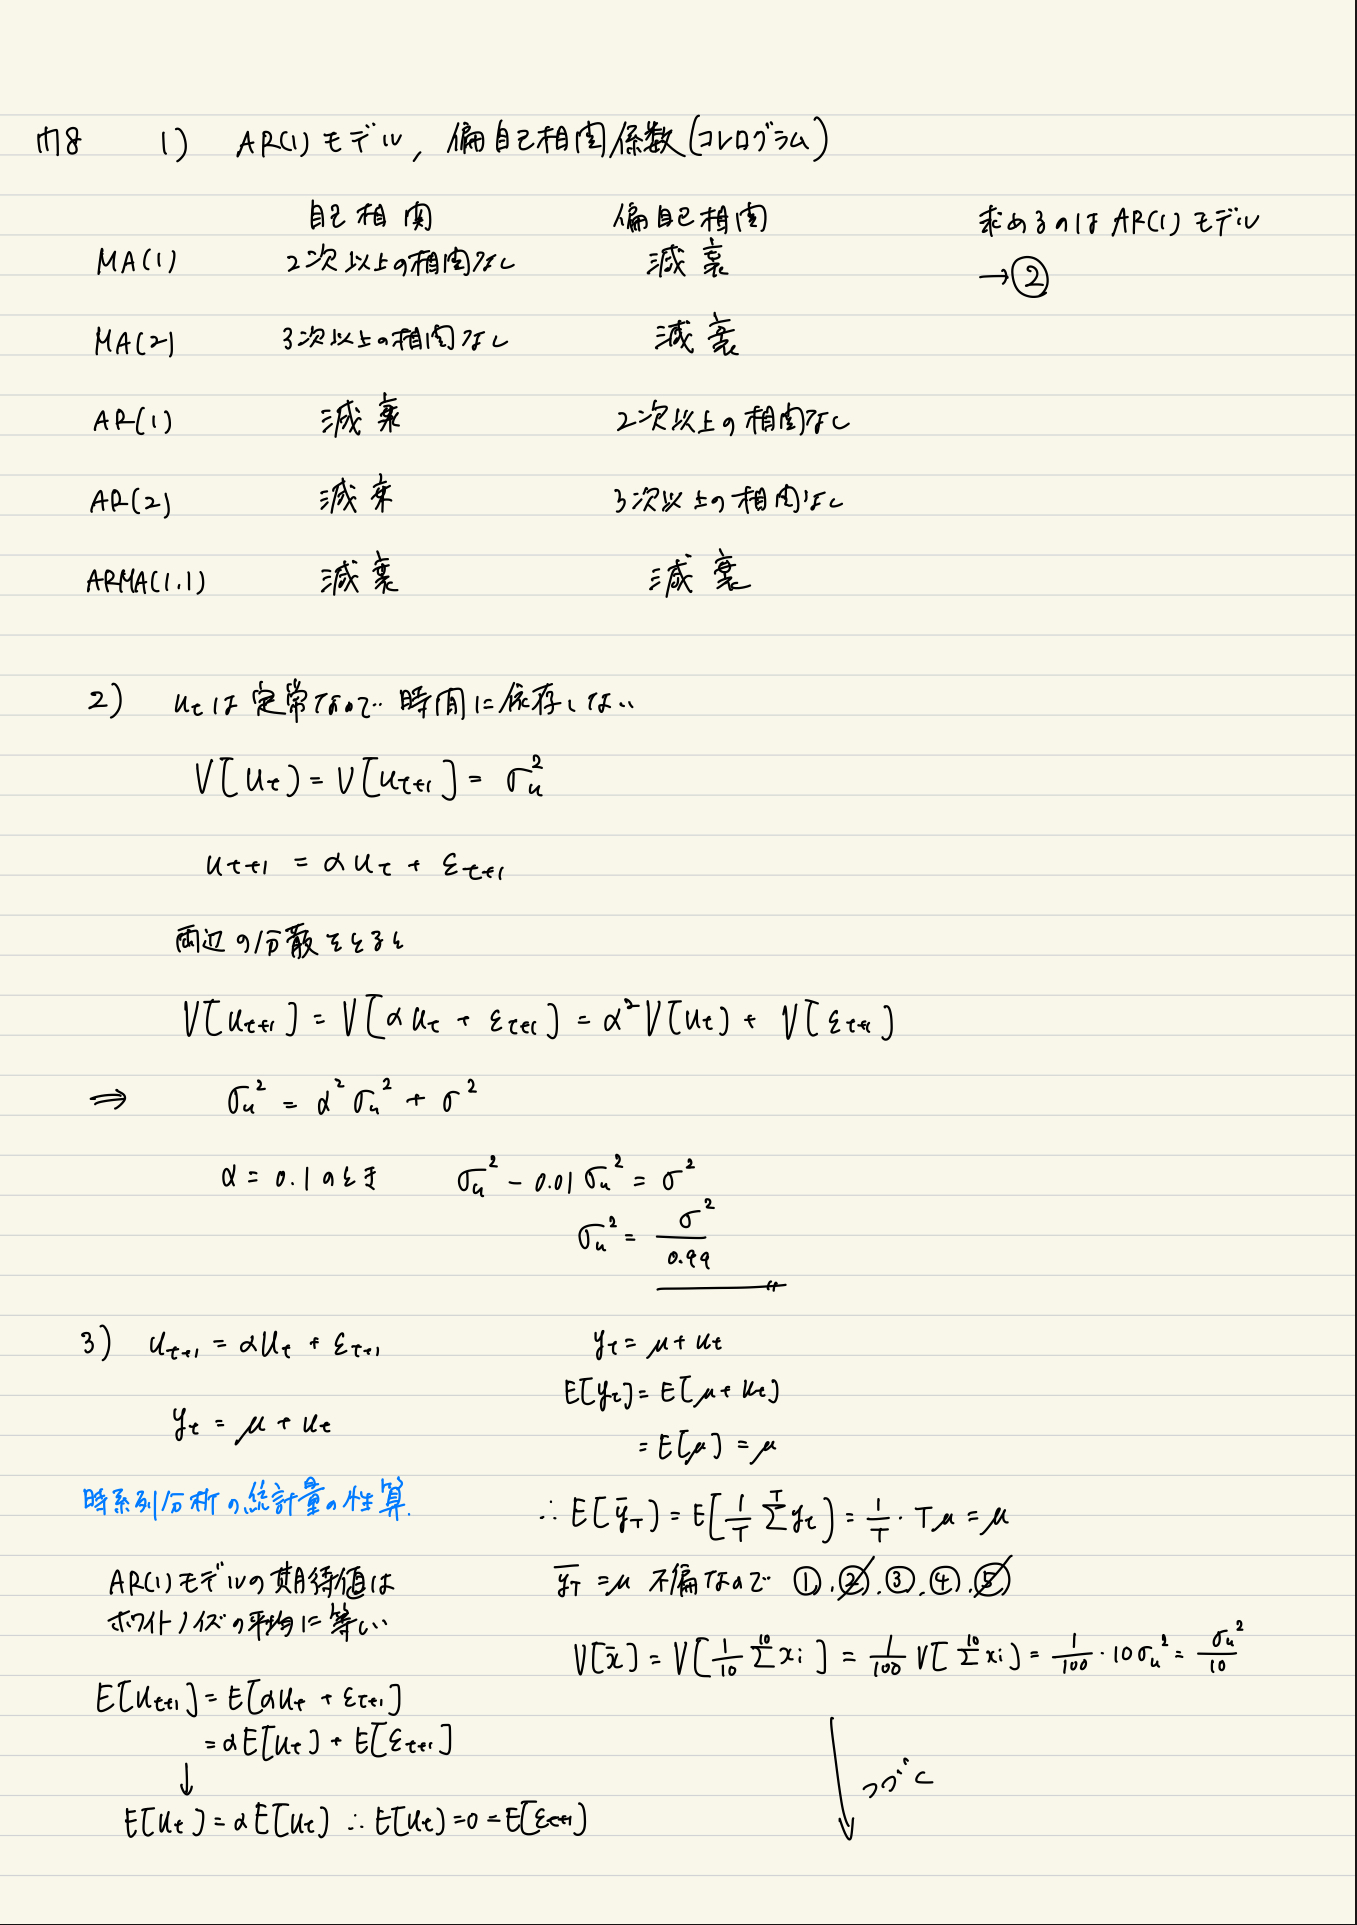 問8 1) AR(1)モデル, 偏自己相関係数(コレログラム)
自己相関 偏自己相関 求めるのはAR(1)モデル
MA(1) 2次以上の相関なし 減衰 →②
MA(2) 3次以上の相関なし 減衰
AR(1) 減衰 2次以上の相関なし
AR(2) 減衰 3次以上の相関なし
ARMA(1.1) 減衰 減衰
2) u_t は定常なので 時間に依存しない
V[u_t] = V[u_{t+1}] = σ_u^2
u_{t+1} = αu_t + ε_{t+1}
両辺の分散をとると
V[u_{t+1}] = V[αu_t + ε_{t+1}] = α^2 V[u_t] + V[ε_{t+1}]
⇒ σ_u^2 = α^2 σ_u^2 + σ^2
α = 0.1のとき σ_u^2 - 0.01σ_u^2 = σ^2
σ_u^2 = σ^2 / 0.99
3) u_{t+1} = αu_t + ε_{t+1}
y_t = μ + u_t
時系列分析の統計量の性算.
AR(1)モデルの期待値は
ホワイトノイズの平均に等しい
E[u_{t+1}] = E[αu_t + ε_{t+1}]
= αE[u_t] + E[ε_{t+1}]
↓
E[u_t] = αE[u_t] ∴ E[u_t] = 0 = E[ε_{t+1}]
y_t = μ + u_t
E[y_t] = E[μ + u_t]
= E[μ] = μ
∴ E[ȳ_T] = E[1/T Σ^T y_t] = 1/T · Tμ = μ
ȳ_T = μ 不偏なので ①, ②, ③, ④, ⑤
V[x̄] = V[1/10 Σ^10 xi] = 1/100 V[Σ^10 xi] = 1/100 · 10σ_u^2 = σ_u^2 / 10
つづく